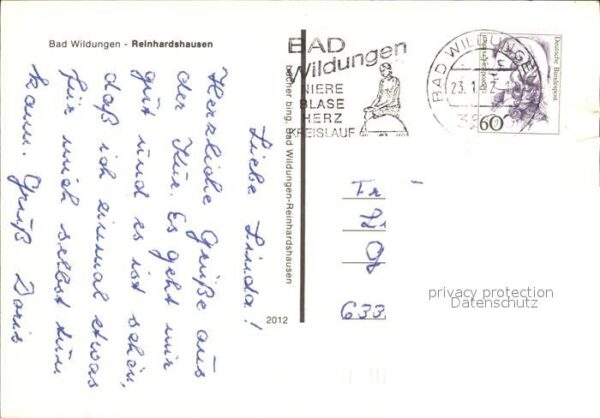 Bad Wildungen - Reinhardshausen
Liebe Linda!
Herzliche Grüße aus
der Kur. Es geht mir
gut und es ist schön,
daß ich einmal etwas
für mich selbst tun
kann. Gruß Doris
bacher bing, Bad Wildungen-Reinhardshausen
2012
BAD
Wildungen
NIERE
BLASE
HERZ
KREISLAUF
BAD WILDUNGEN
23.1.
Deutsche Bundespost
60
Fr
633
privacy protection
Datenschutz